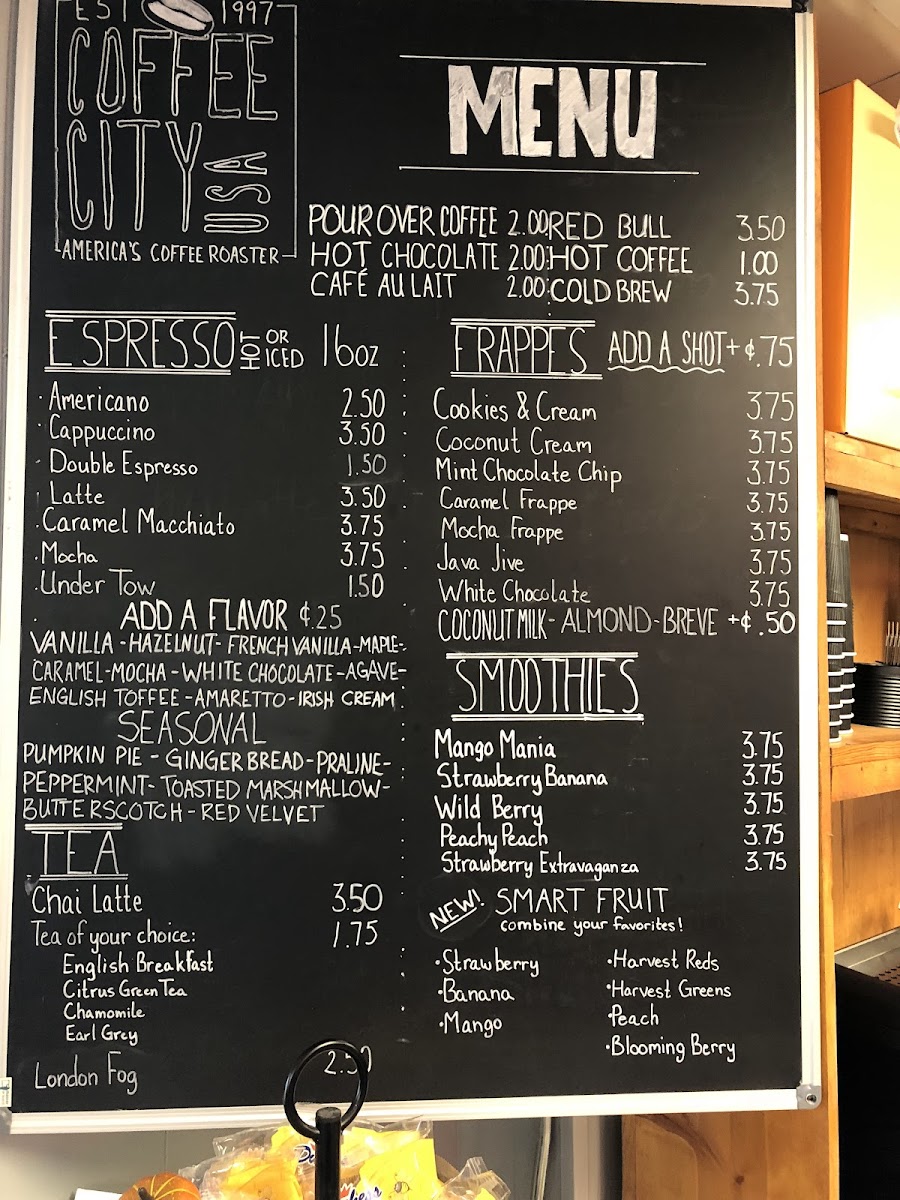 EST 1997
COFFEE
CITY
USA
AMERICA'S COFFEE ROASTER
MENU
POUR OVER COFFEE 2.00
HOT CHOCOLATE 2.00
CAFÉ AU LAIT 2.00
RED BULL 3.50
HOT COFFEE 1.00
COLD BREW 3.75
ESPRESSO HOT OR ICED 16oz
Americano 2.50
Cappuccino 3.50
Double Espresso 1.50
Latte 3.50
Caramel Macchiato 3.75
Mocha 3.75
Under Tow 1.50
ADD A FLAVOR ¢.25
VANILLA - HAZELNUT - FRENCH VANILLA - MAPLE -
CARAMEL - MOCHA - WHITE CHOCOLATE - AGAVE -
ENGLISH TOFFEE - AMARETTO - IRISH CREAM
SEASONAL
PUMPKIN PIE - GINGER BREAD - PRALINE -
PEPPERMINT - TOASTED MARSHMALLOW -
BUTTERSCOTCH - RED VELVET
TEA
Chai Latte 3.50
Tea of your choice: 1.75
English Breakfast
Citrus Green Tea
Chamomile
Earl Grey
London Fog 2.50
FRAPPES ADD A SHOT + ¢.75
Cookies & Cream 3.75
Coconut Cream 3.75
Mint Chocolate Chip 3.75
Caramel Frappe 3.75
Mocha Frappe 3.75
Java Jive 3.75
White Chocolate 3.75
COCONUT MILK - ALMOND - BREVE +¢.50
SMOOTHIES
Mango Mania 3.75
Strawberry Banana 3.75
Wild Berry 3.75
Peachy Peach 3.75
Strawberry Extravaganza 3.75
NEW! SMART FRUIT
combine your favorites!
·Strawberry
·Banana
·Mango
·Harvest Reds
·Harvest Greens
·Peach
·Blooming Berry